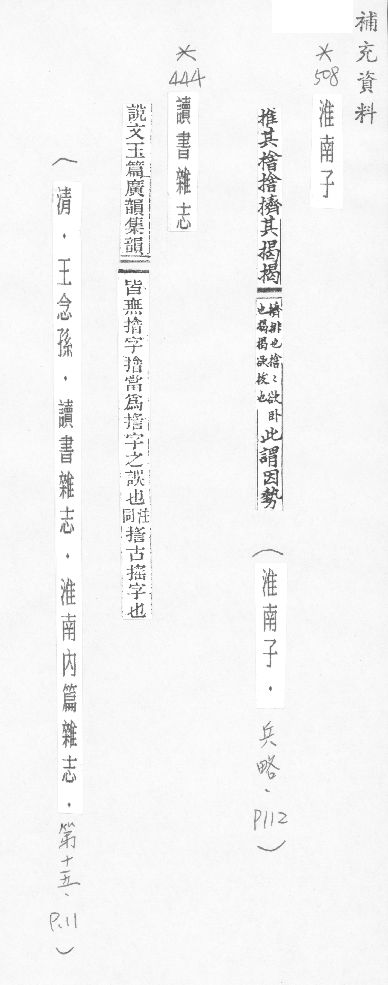 補充資料
*508 淮南子
推其㨻㨻擠其揭揭 擠排也㨻㨻欲臥也揭揭欲拔也 此謂因勢 (淮南子.兵略.P112)
*444 讀書雜志
說文玉篇廣韻集韻 皆無㨻字㨻當爲㨱字之誤也 注同 㨱古搖字也
(清.王念孫.讀書雜志.淮南內篇雜志.第十五.P.11)